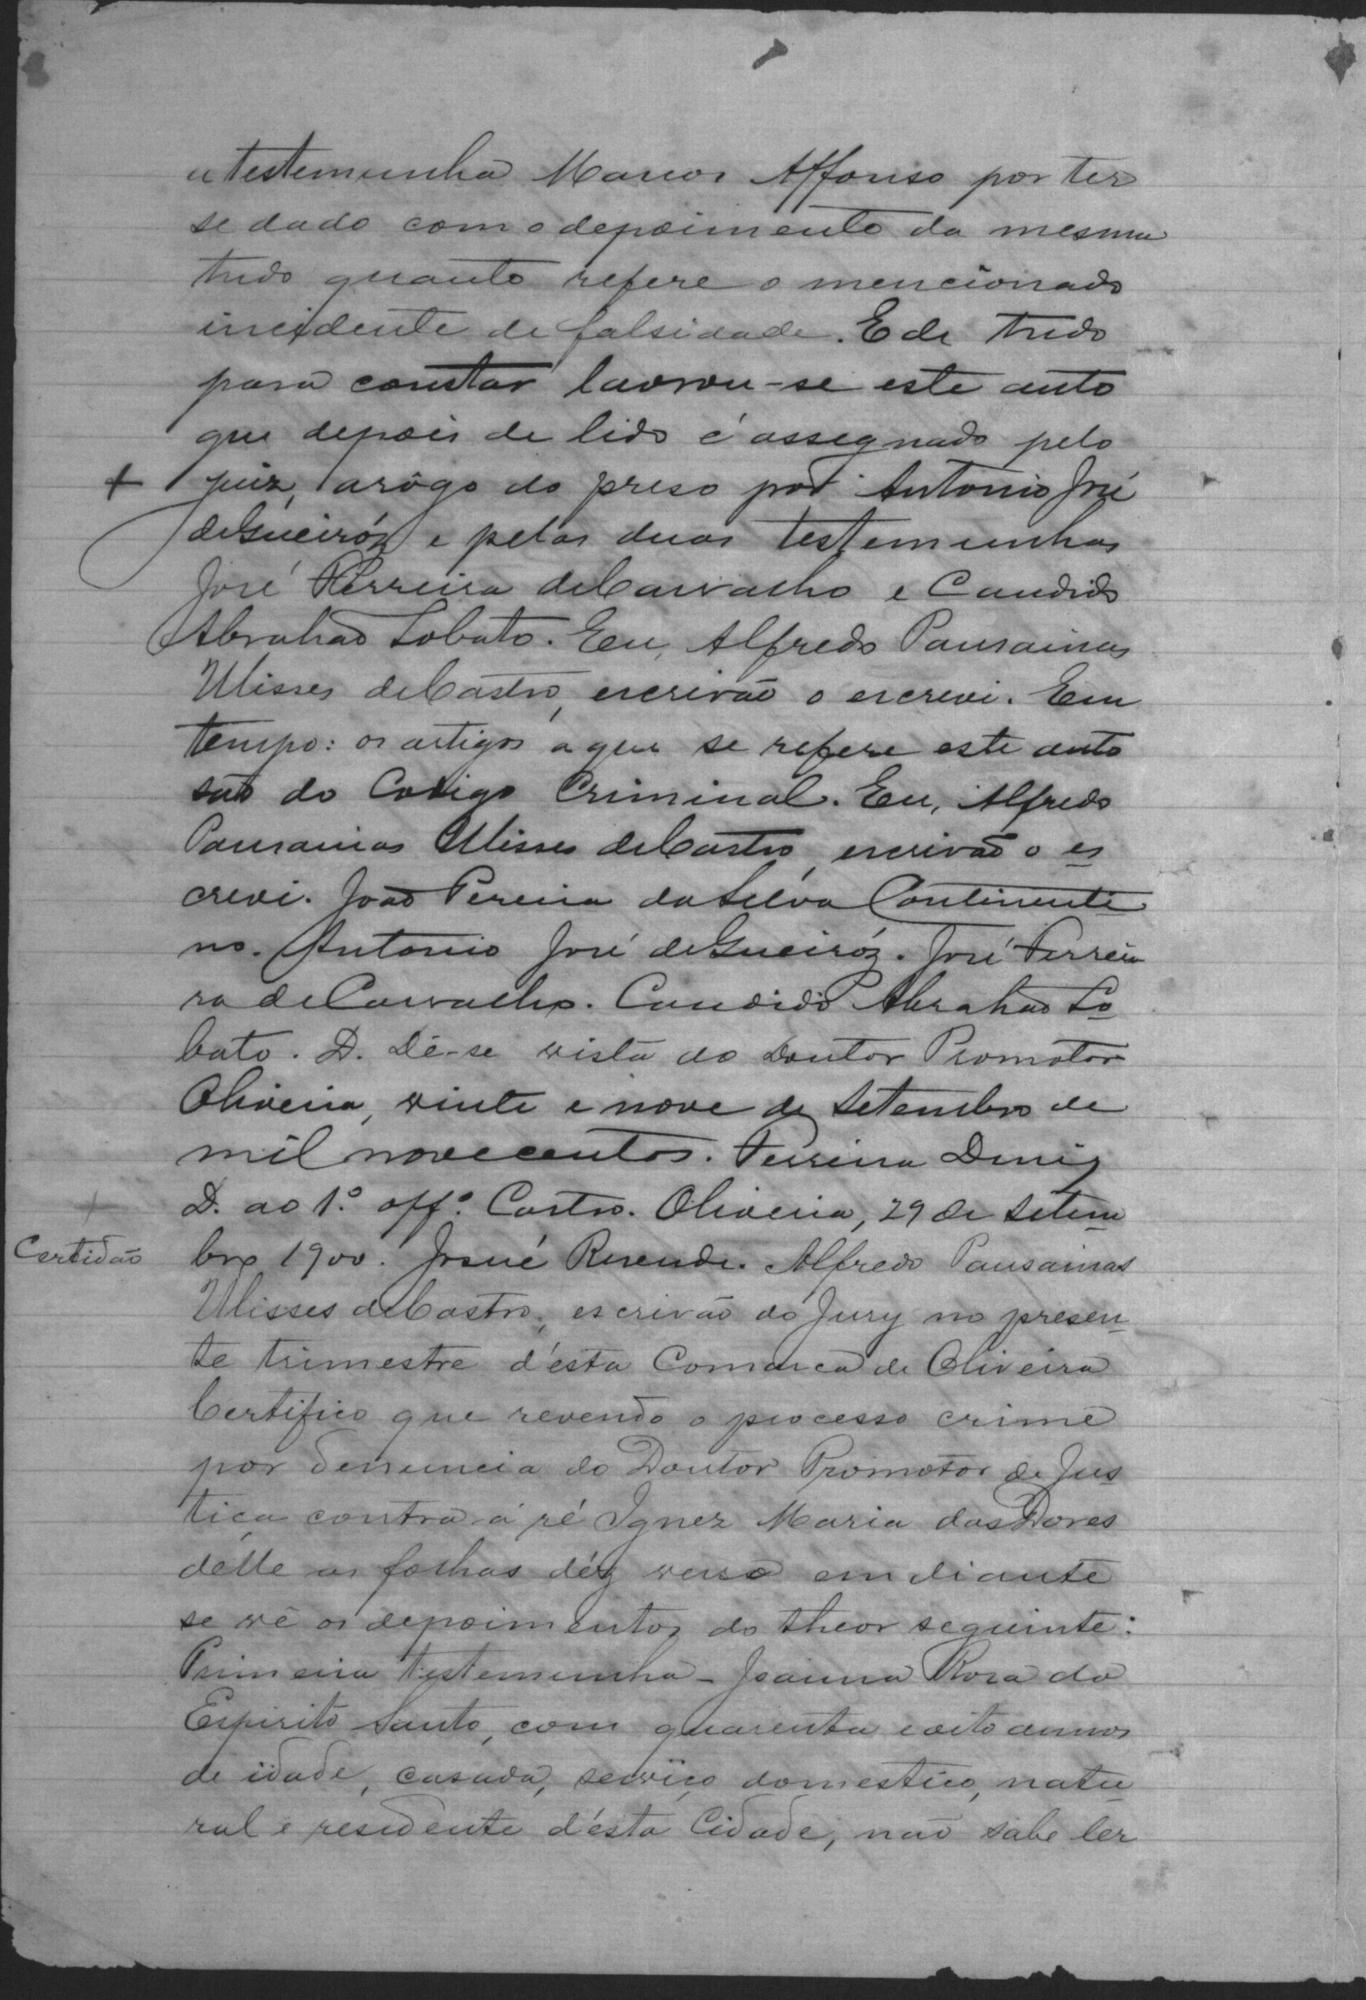 a testemunha Marcos Affonso por ter
se dado com o depoimento da mesma
tudo quanto refere o mencionado
incidente de falsidade. E de tudo
para constar lavrou-se este auto
que depois de lido é assegnado pelo
+ juiz, a rôgo do preso por Antonio José
de Gueiróz e pelas duas testemunhas
José Ferreira de Carvalho e Candido
Abrahão Lobato. Eu, Alfredo Pausanias
Ulisses de Castro, escrivão o escrevi. Em
tempo: os artigos a que se refere este auto
são do Codigo Criminal. Eu, Alfredo
Pausanias Ulisses de Castro, escrivão o es
crevi. João Pereira da Silva Continenti
no. Antonio José de Gueiróz. José Ferrei
ra de Carvalho. Candido Abrahão Lo
bato. D. Dê-se vista ao Doutor Promotor
Oliveira, vinte e nove de Setembro de
mil novecentos. Ferreira Diniz
D. ao 1º. offº. Castro. Oliveira, 29 de Setem
Certidão
bro 1900. Josué Resende. Alfredo Pausanias
Ulisses de Castro, escrivão do Jury no presen-
te trimestre d'ésta Comarca de Oliveira
Certifico que revendo o processo crime
por denuncia do Doutor Promotor de Jus
tiça contra a ré Ignez Maria das Dores
délle as folhas déz verso em diante
se vê os depoimentos do theor seguinte:
Primeira testemunha - Joanna Rosa do
Espirito Santo, com quarenta e oito annos
de idade, casada, serviço domestico, natu
ral e residente d'ésta Cidade, não sabe ler